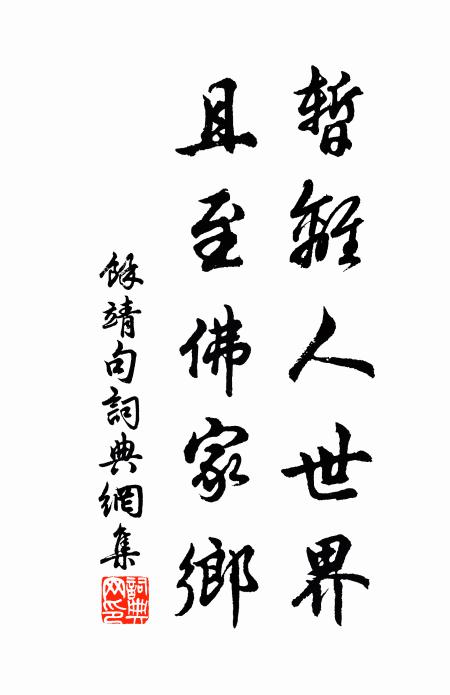 暫離人世界
且至佛家鄉
餘靖句詞典網集
詞典
网印